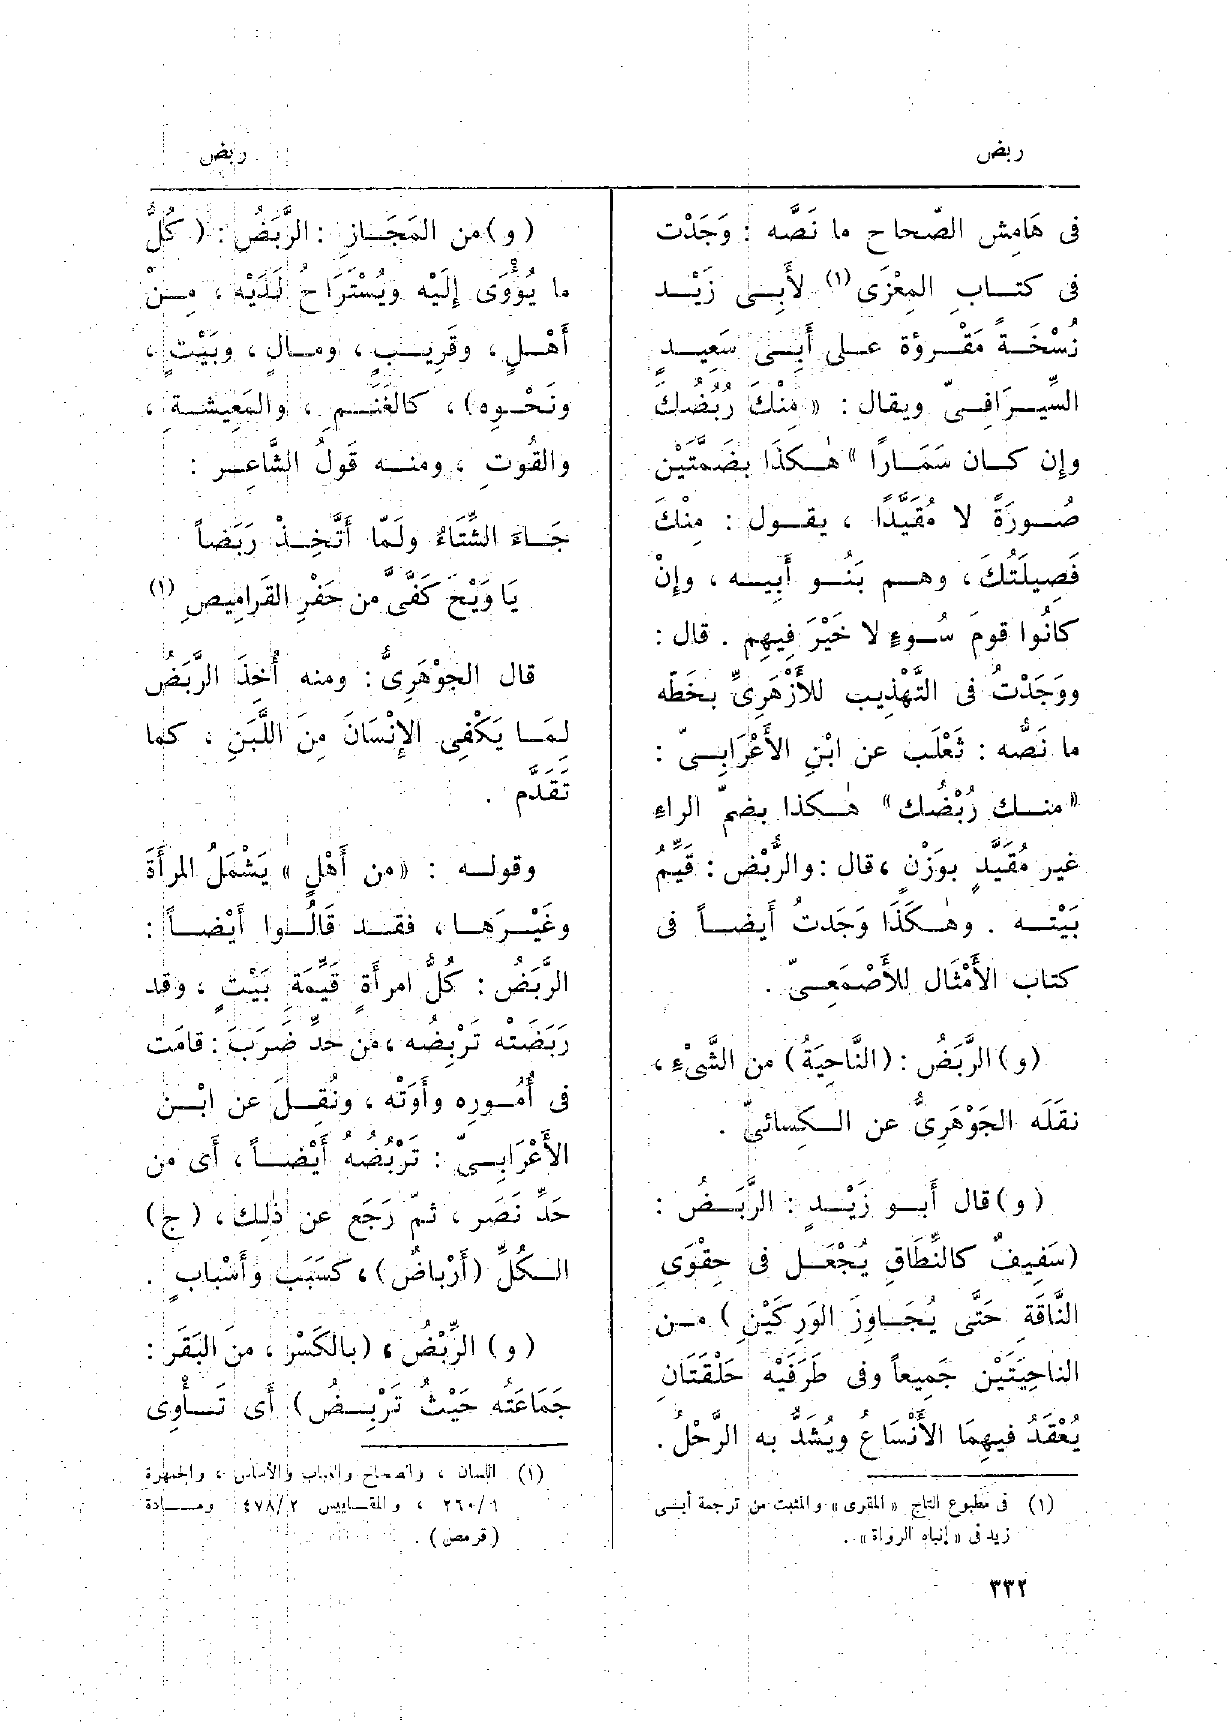 ربض
ربض
فى هَامِش الصّحاح ما نَصَّه : وَجَدْت
فى كتــاب المِعْزَى (١) لأَبــى زَيْــد
نُسْخَــةً مَقْــرؤة علــى أَبِــى سَعِيــدٍ
السِّيــرَافِــىّ ويقال : «مِنْكَ رُبُضُكَ
وإن كــان سَمَــارًا» هٰــكَذَا بضَمَّتَيْن
صُــورَةً لا مُقَيَّدًا ، يقــول : مِنْكَ
فَصِيلَتُكَ ، وهــم بَنُــو أَبيــه ، وإنْ
كانُوا قومَ سُــوءٍ لا خَيْرَ فِيهِم . قال :
ووَجَدْتُ فى التَّهْذِيب للأَزْهَرِىِّ بخَطّه
ما نَصُّه : ثَعْلَب عن ابْنِ الأَعْرَابِــىّ :
«منــك رُبْضُك» هٰــكذا بضمّ الراء
غير مُقَيَّدٍ بوَزْنٍ ، قال : والرُّبْضُ : قَيِّمُ
بَيْتــه . وهٰــكَذَا وَجَدتُ أَيضــاً فى
كتاب الأَمْثَال للأَصْمَعِــىّ .
(و) الرَّبَضُ : (النَّاحِيَةُ) من الشَّىْءِ ،
نقَلَه الجَوْهَرِىُّ عن الــكِسائىّ .
(و) قال أَبــو زَيْــدٍ : الرَّبَــضُ :
(سَفِيفٌ كالنِّطَاقِ يُجْعَــل فى حِقْوَىِ
النَّاقَةِ حَتَّى يُجَــاوِزَ الوَرِكَيْنِ) مــن
الناحِيَتَيْن جَمِيعاً وفى طَرَفَيْه حَلْقَتَان
يُعْقَدُ فيهِمَا الأَنْسَاعُ ويُشَدُّ به الرَّحْلُ .
(١) فى مطبوع التاج «المقرى» والمثبت من ترجمة أبــى
زيد فى «إنباه الرواة» .
(و) من المَجَــازِ : الرَّبَضُ : (كُلُّ
ما يُؤْوَى إِلَيْه ويُسْتَرَاحُ لَدَيْه ، مِــنْ
أَهْــلٍ ، وقَرِيــبٍ ، ومــالٍ ، وبَيْتٍ ،
ونَحْــوِه) ، كالغَنَــمِ ، والمَعِيشــةِ ،
والقُوتِ ، ومنــه قَولُ الشَّاعــر :
جَــاءَ الشِّتَاءُ ولَمَّا أَتَّخِــذْ رَبَضــاً
يَا وَيْحَ كَفَّىَّ من حَفْرِ القَرامِيصِ (١)
قال الجوْهَرِىُّ : ومنه أُخِذَ الرَّبَضُ
لِمَــا يَكْفِى الإِنْسَانَ مِنَ اللَّبَنِ ، كما
تَقَدَّم .
وقولــه : «من أَهْلٍ» يَشْمَلُ المرأَةَ
وغَيْــرَهــا ، فقــد قَالُــوا أَيْضــاً :
الرَّبَضُ : كُلُّ امرأَةٍ قَيِّمَةِ بَيْتٍ ، وقد
رَبَضَتْه تَرْبِضُه ، من حَدِّ ضَرَبَ : قامَت
فى أُمُــوره وأَوَتْه ، ونُقِــلَ عن ابْــن
الأَعْرَابِــىّ : تَرْبُضُه أَيْضــاً ، أَى من
حَدِّ نَصَر ، ثمّ رَجَع عن ذٰلِك ، (ج)
الــكُلِّ (أَرْباضٌ) ، كسَبَب وأَسْبابٍ .
(و) الرِّبْضُ ، (بالكَسْرِ ، منَ البَقَر :
جَمَاعَتُه حَيْثُ تَرْبِــضُ) أَى تَــأْوِى
(١) اللسان ، والصحاح والعباب والأساس ، والجمهرة
٢٦٠/١ ، والمقــاييس ٤٧٨/٢ ومــادة
(قرمص) .
٣٣٢